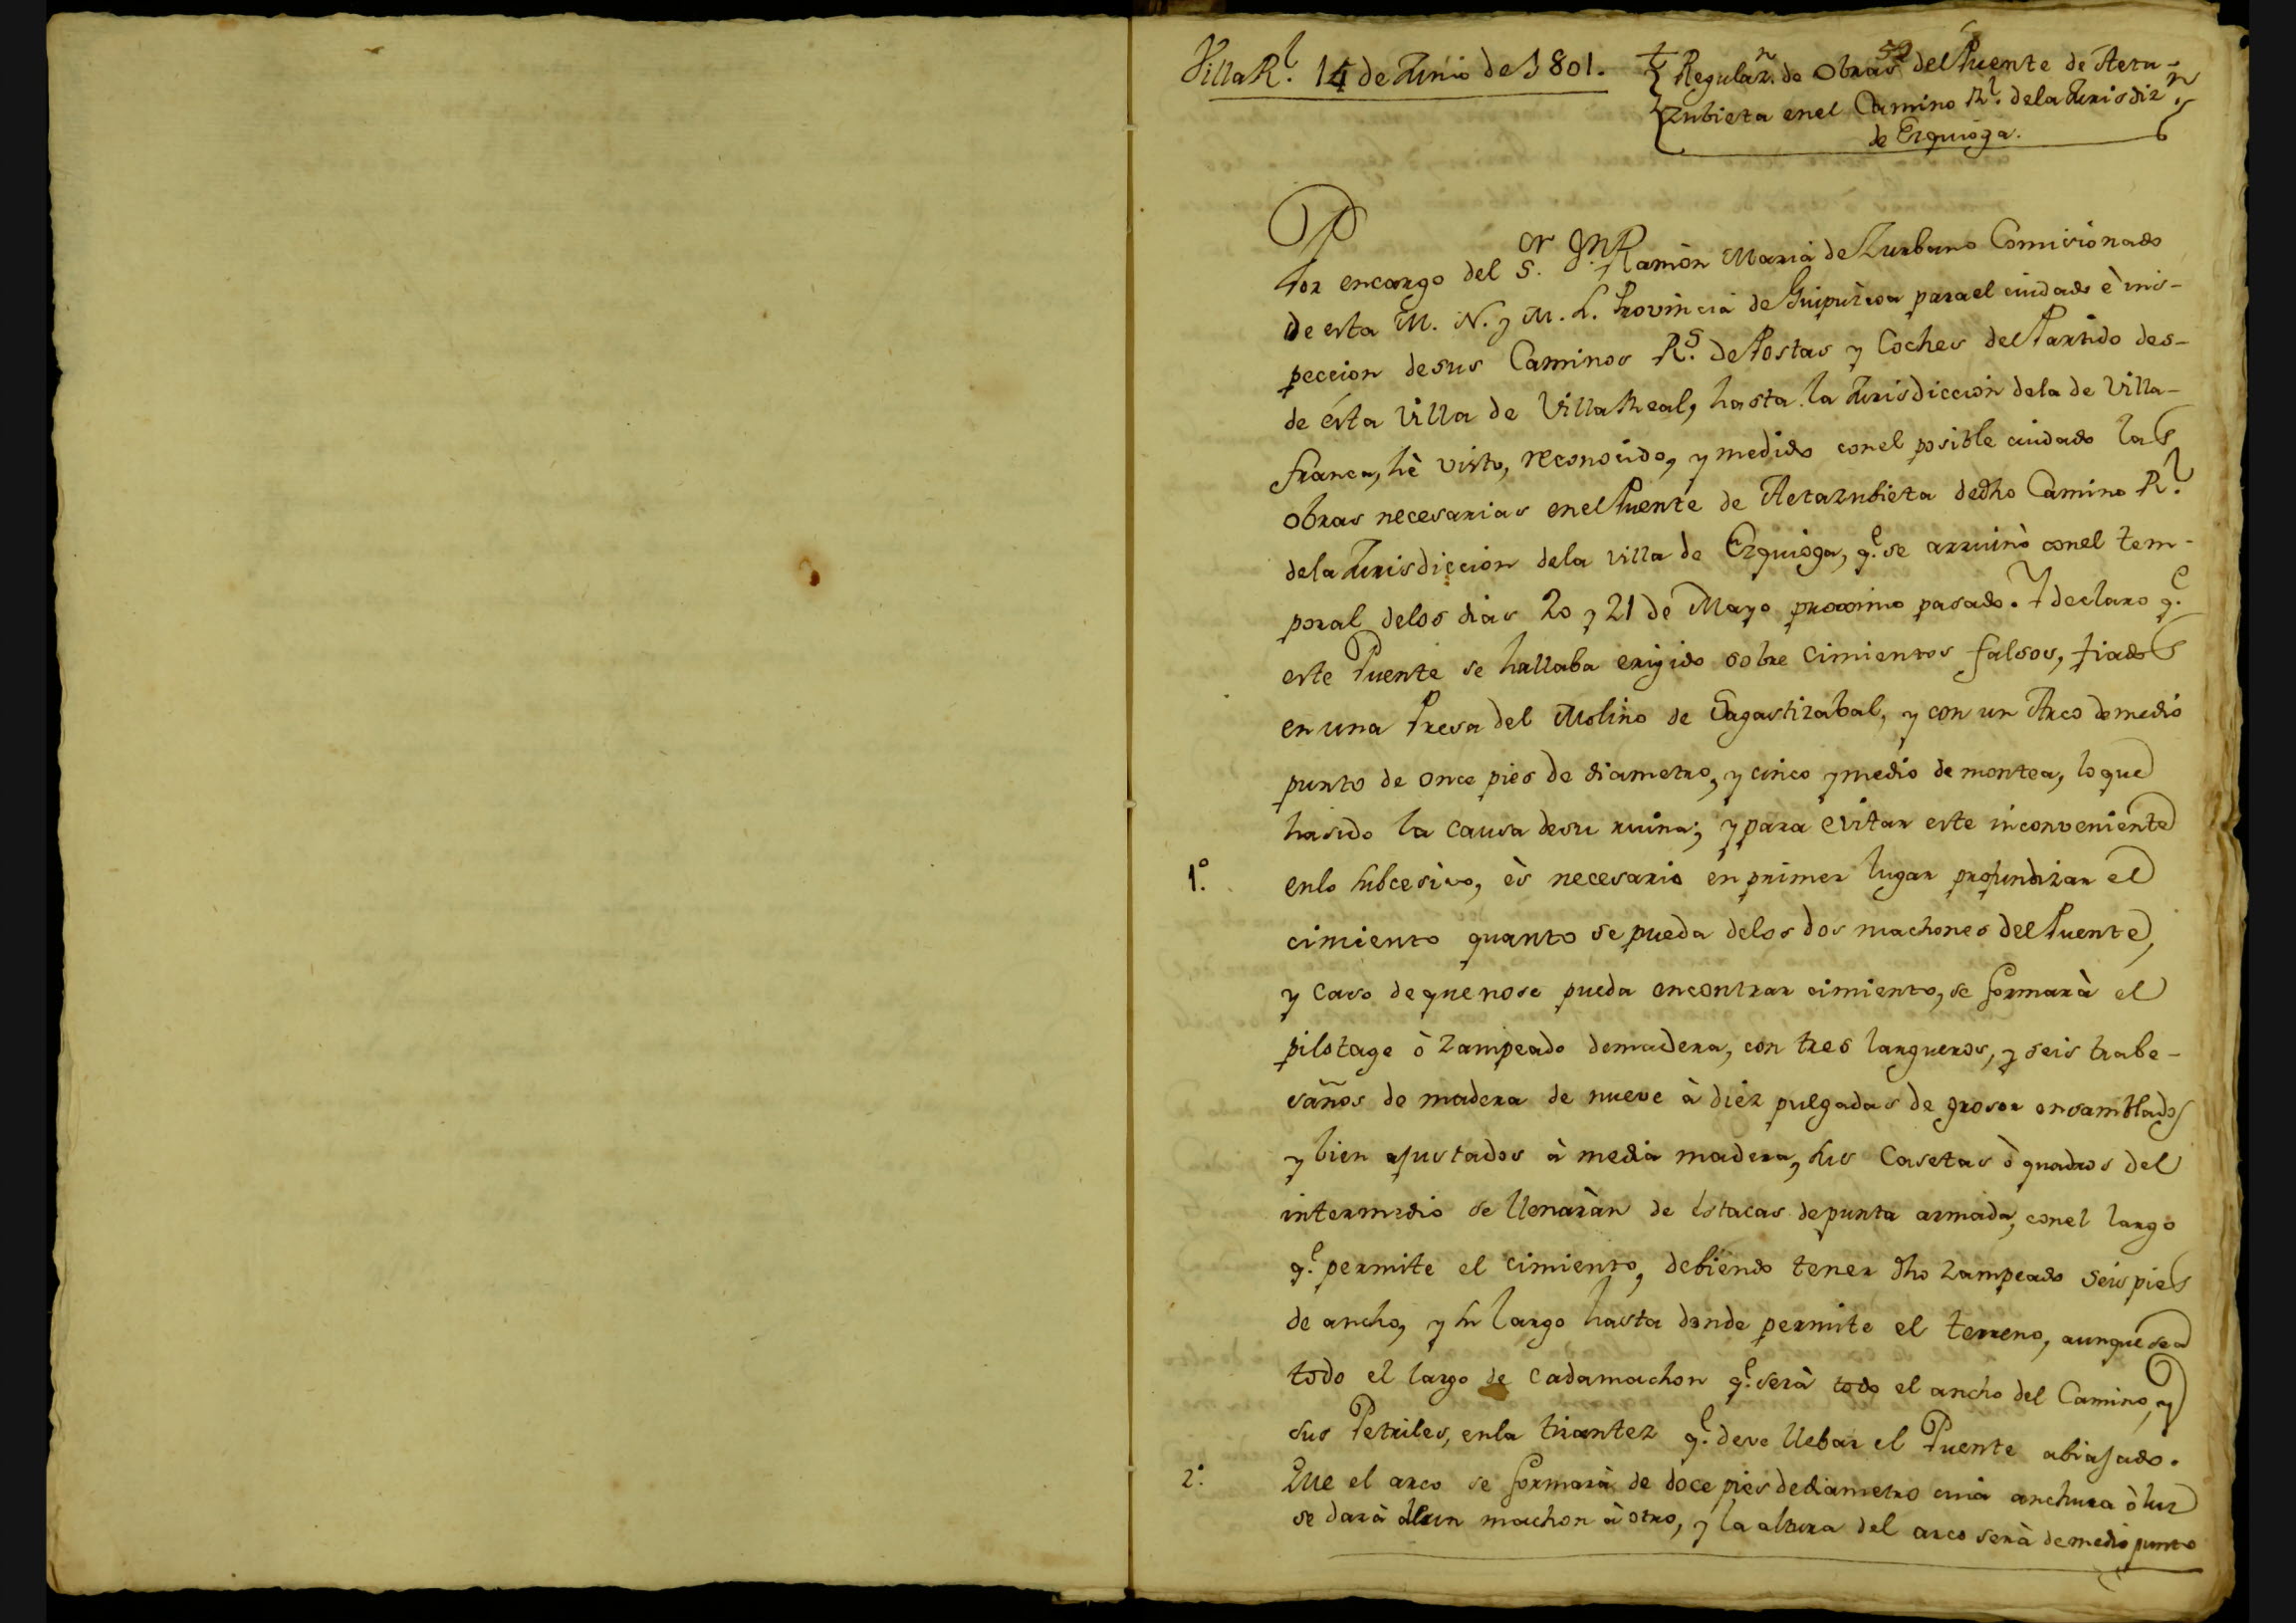 Villa Rl. 14 de Junio de 1801.
Regulazn. de Obras del Puente de Aeta-
zubieta en el Camino Rl. de la Jurisdizn.
de Ezquioga.
Por encargo del Sr. Dn. Ramòn Maria de Zurbano Comisionado
de esta M. N. y M. L. Provincia de Guipùzcoa para el cuidado è ins-
peccion de sus Caminos Rs. de Postas y Coches del Partido des-
de ésta Villa de Villa Real, hasta la Jurisdiccion de la de Villa-
franca, hè visto, reconocido, y medido con el posible cuidado las
obras necesarias en el Puente de Aetazubieta de dho Camino Rl.
de la Jurisdiccion de la villa de Ezquioga, qe. se arruinò con el tem-
poral de los dias 20 y 21 de Mayo proximo pasado. Y declaro qe.
este Puente se hallaba erigido sobre cimientos falsos, fiados
en una Presa del Molino de Sagastizabal, y con un Arco de medio
punto de once pies de diametro, y cinco y medio de montea, lo que
ha sido la causa de su ruina; y para evitar este inconveniente
1.º en lo subcesivo, ès necesario en primer lugar profundizar el
cimiento quanto se pueda de los dos machones del Puente,
y caso de que no se pueda encontrar cimiento, se formarà el
pilotage ò zampeado de madera, con tres largueros, y seis trabe-
saños de madera de nueve à diéz pulgadas de grosor ensamblados
y bien ajustados à media madera, sus Casetas ò quadros del
intermedio se llenaràn de estacas de punta armada, con el largo
qe. permite el cimiento, debiendo tener dho zampeado seis pies
de ancho, y su largo hasta donde permite el terreno, aunque sea
todo el largo de cada machon qe. serà todo el ancho del Camino, y
sus Petriles, en la tirantez qe. deve llebar el Puente abiajado.
2.º Que el arco se formarà de doce pies de diametro cuia anchura ò luz
se darà de un machon à otro, y la altura del arco serà de medio punto